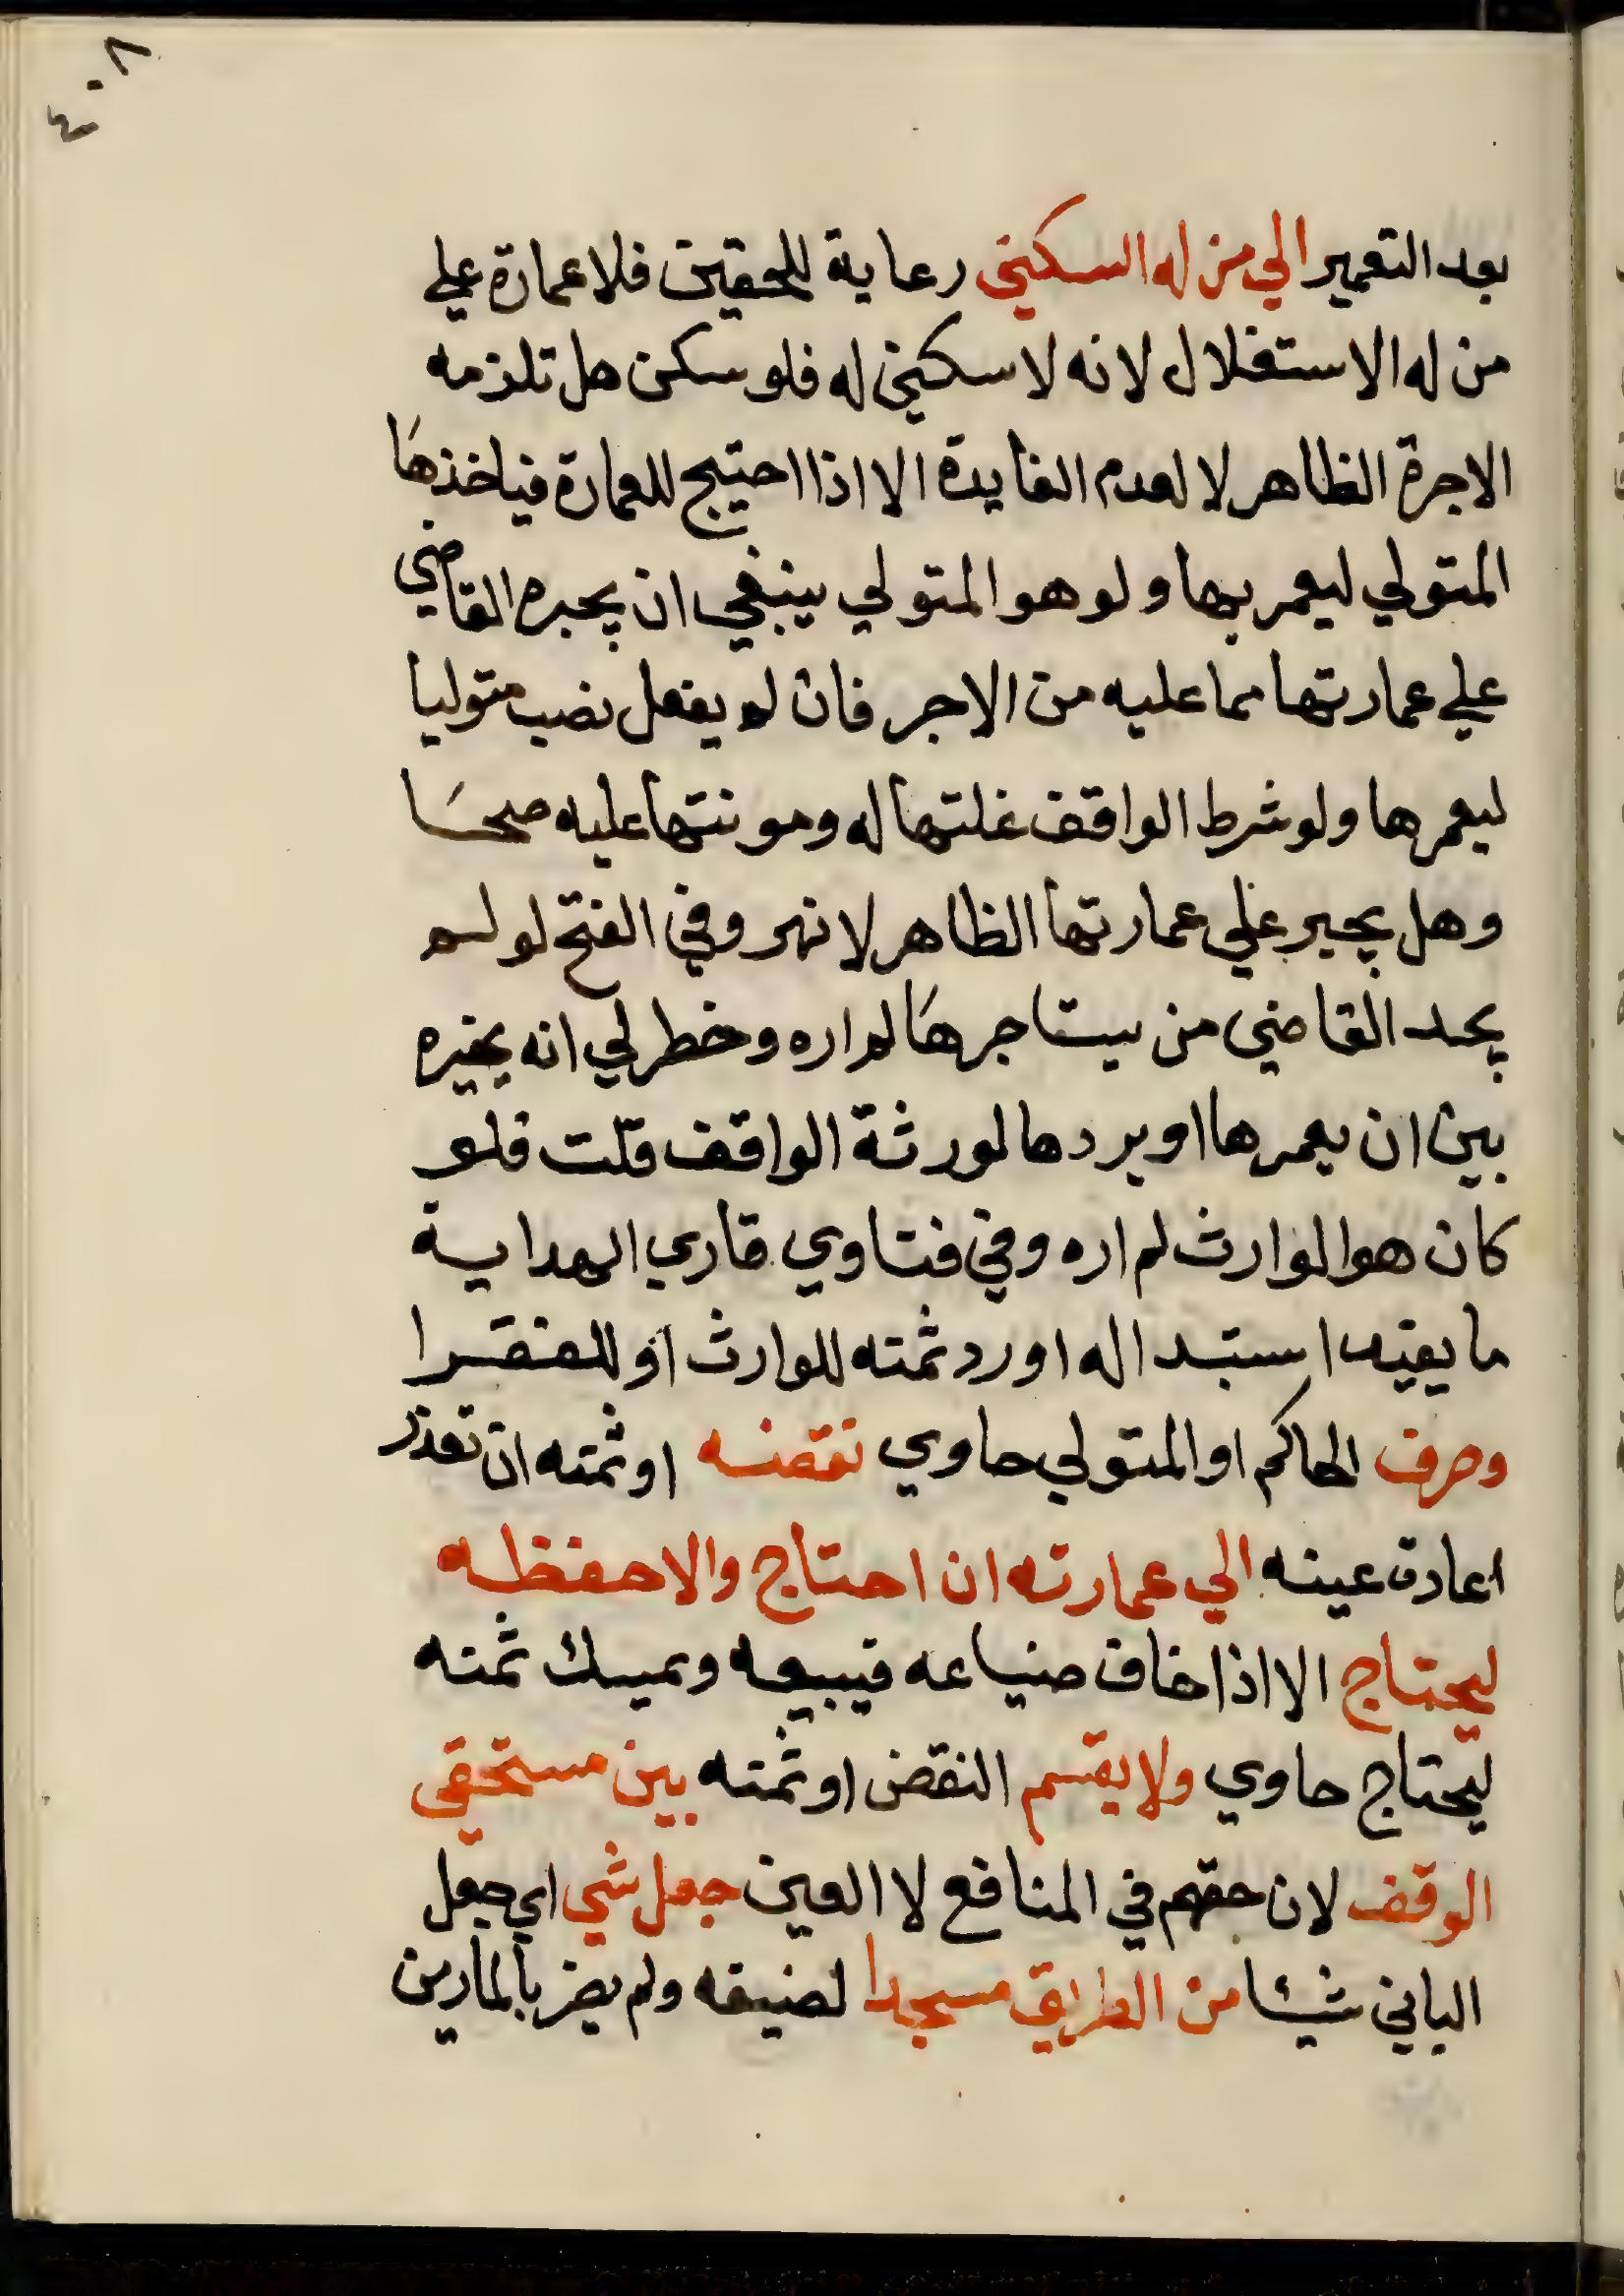 ٤٠٨
بعد التعمير الي من له السكني رعاية للحقين فلا عمارة علي
من له الاستغلال لانه لا سكني له فلو سكن هل تلزمه
الاجرة الظاهر لا لعدم الفايدة الا اذا احتيج للعمارة فياخذها
المتولي ليعمر بها ولو هو المتولي ينبغي ان يجبره القاضي
علي عمارتها مما عليه من الاجر فان لم يفعل نصب متوليا
ليعمرها ولو شرط الواقف غلتها له ومونتها عليه صحا
وهل يجبر علي عمارتها الظاهر لا نهر وفي الفتح لو لم
يجد القاضي من يستاجرها لم اره وخطر لي انه يخيره
بين ان يعمرها او يردها لورثة الواقف قلت فلو
كان هو الوارث لم اره وفي فتاوي قاري الهداية
ما يفيد استبداله او رد ثمنه للوارث او للفقرا
وصرف الحاكم او المتولي حاوي نقضه او ثمنه ان تعذر
اعادة عينه الي عمارته ان احتاج والا حفظه
ليحتاج الا اذا خاف ضياعه فيبيعه ويمسك ثمنه
ليحتاج حاوي ولا يقسم النقض او ثمنه بين مستحقي
الوقف لان حقهم في المنافع لا العين جعل شي اي جعل
الباني شيئا من الطريق مسجدا لضيقه ولم يضر بالمارين